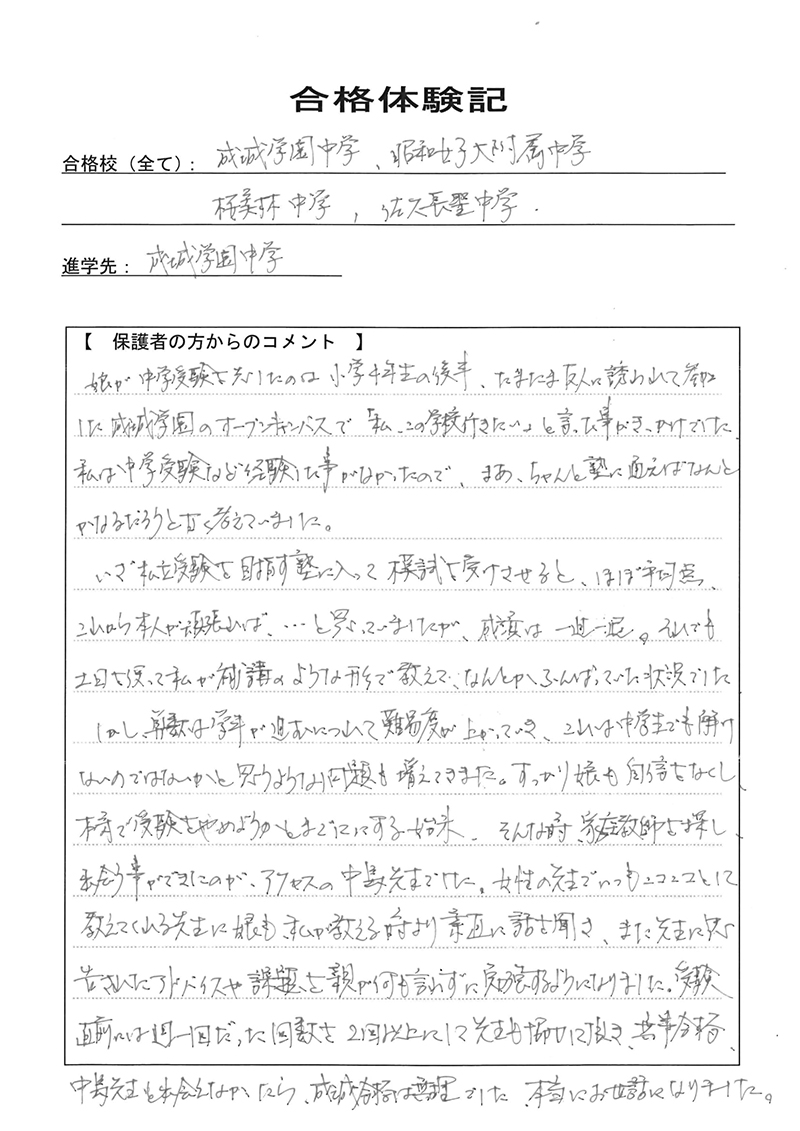 合格体験記
合格校（全て）： 成城学園中学、昭和女子大附属中学
桜美林中学，佐久長聖中学．
進学先： 成城学園中学
【 保護者の方からのコメント 】
娘が中学受験を志したのは小学4年生の後半、たまたま友人に誘われて参加
した成城学園のオープンキャンパスで「私、この学校行きたい」と言った事がきっかけでした
私は中学受験など経験した事がなかったので、まあ、ちゃんと塾に通えばなんと
かなるだろうと甘く考えていました。
いざ私立受験を目指す塾に入って模試を受けさせると、ほぼ平均点、
これから本人が頑張れば、…と思っていましたが、成績は一進一退。それでも
土日を使って私が補講のような形で教えて、なんとかふんばっていた状況でした
しかし、算数は学年が進むにつれて難易度が上がっていき、これは中学生でも解け
ないのではないかと思うような問題も増えてきました。すっかり娘も自信をなくし、
本番で受験をやめようかとまで口にする始末．そんな時、家庭教師を探し、
出会う事ができたのが、アクセスの中島先生でした。女性の先生でいつもニコニコとして
教えてくれる先生に娘も、私が教える時より素直に話を聞き、また先生に
告されたアドバイスや課題を親が何も言わずに勉強するようになりました。受験
直前には週一回だった回数を2回以上にして先生も 無事合格、
中島先生と出会えなかったら、成城合格は無理でした．本当にお世話になりました。